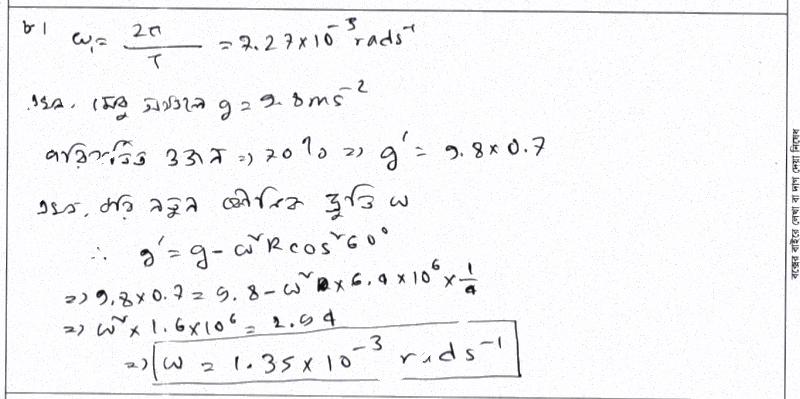 ৮। ω₁ = 2π/T = 7.27×10⁻⁵ rads⁻¹
এখন, মেরু অঞ্চলে g = 9.8ms⁻²
পরিবর্তিত ওজন => 70% => g' = 9.8×0.7
এখন, ধরি নতুন কৌণিক দ্রুতি ω
∴ g' = g - ω²Rcos²60°
=> 9.8×0.7 = 9.8 - ω² × 6.4×10⁶ × 1/4
=> ω² × 1.6×10⁶ = 2.94
=> ω = 1.35×10⁻³ rads⁻¹
বক্সের বাইরে লেখা বা দাগ দেয়া নিষেধ